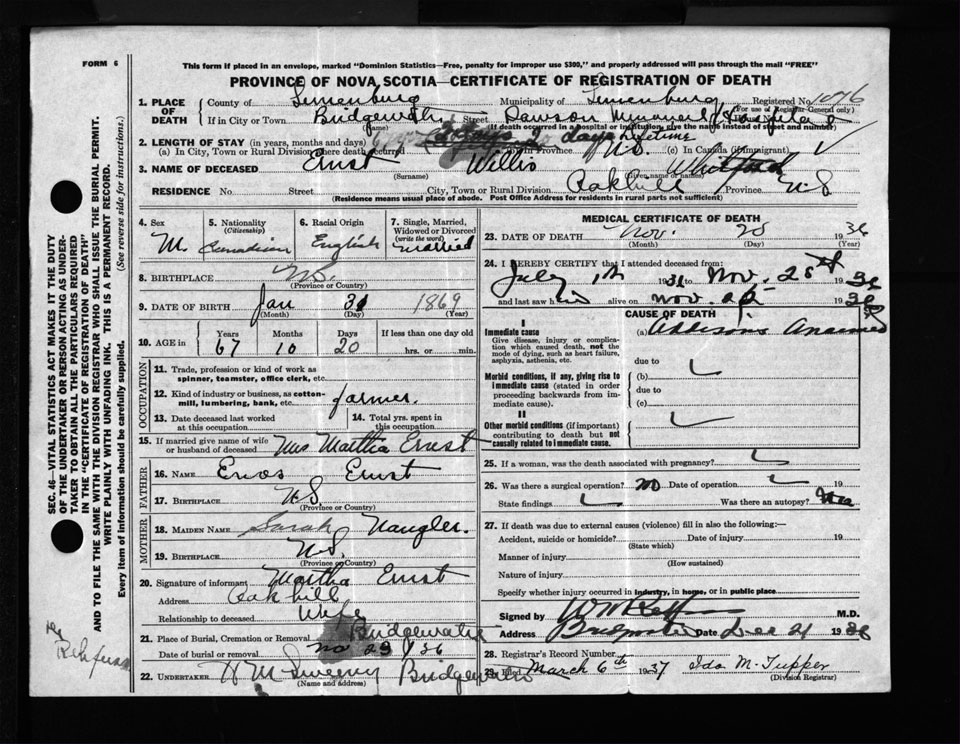 FORM 6
This form if placed in an envelope, marked "Dominion Statistics—Free, penalty for improper use $300," and properly addressed will pass through the mail "FREE"
PROVINCE OF NOVA SCOTIA—CERTIFICATE OF REGISTRATION OF DEATH
1. PLACE OF DEATH
County of Lunenburg Municipality of Lunenburg Registered No. 1076
(For use of Registrar General only)
If in City or Town Bridgewater Street Dawson Memorial Hospital
(Name) (If death occurred in a hospital or institution, give the name instead of street and number)
2. LENGTH OF STAY (in years, months and days)
(a) In City, Town or Rural Division where death occurred days (b) In Province life time N.S. (c) In Canada (if immigrant)
3. NAME OF DECEASED Ernst Willis
(Surname) (Given name or names)
RESIDENCE No. Street City, Town or Rural Division Oakhill Province N.S
(Residence means usual place of abode. Post Office Address for residents in rural parts not sufficient)
4. Sex M.
5. Nationality (Citizenship) Canadian
6. Racial Origin English
7. Single, Married, Widowed or Divorced (write the word) Married
8. BIRTHPLACE N.S.
(Province or Country)
9. DATE OF BIRTH Jan 31 1869
(Month) (Day) (Year)
10. AGE in Years 67 Months 10 Days 20 If less than one day old hrs. or min.
OCCUPATION
11. Trade, profession or kind of work as spinner, teamster, office clerk, etc.
12. Kind of industry or business, as cotton-mill, lumbering, bank, etc. farmer.
13. Date deceased last worked at this occupation
14. Total yrs. spent in this occupation
15. If married give name of wife or husband of deceased Mrs Martha Ernst
FATHER
16. NAME Enos Ernst
17. BIRTHPLACE N.S
(Province or Country)
MOTHER
18. MAIDEN NAME Sarah Naugler.
19. BIRTHPLACE N.S.
(Province or Country)
20. Signature of informant Martha Ernst
Address Oakhill
Relationship to deceased Wife
21. Place of Burial, Cremation or Removal Bridgewater
Date of burial or removal Nov 23 1936
22. UNDERTAKER H M Sweeny Bridgewater
(Name and address)
MEDICAL CERTIFICATE OF DEATH
23. DATE OF DEATH Nov. 20 1936
(Month) (Day) (Year)
24. I HEREBY CERTIFY that I attended deceased from:
July 1936 to Nov. 1936
and last saw h alive on Nov. 1936
CAUSE OF DEATH
I
Immediate cause
Give disease, injury or complication which caused death, not the mode of dying, such as heart failure, asphyxia, asthenia, etc.
(a) Addisons Anaemia
due to
Morbid conditions, if any, giving rise to immediate cause (stated in order proceeding backwards from immediate cause).
(b)
due to
(c)
II
Other morbid conditions (if important) contributing to death but not causally related to immediate cause.
25. If a woman, was the death associated with pregnancy?
26. Was there a surgical operation? no Date of operation
State findings Was there an autopsy?
27. If death was due to external causes (violence) fill in also the following:—
Accident, suicide or homicide? Date of injury 19
(State which)
Manner of injury
(How sustained)
Nature of injury
Specify whether injury occurred in industry, in home, or in public place
Signed by M.D.
Address Bridgewater Date Dec 21 1936
28. Registrar's Record Number
29. Filed March 6th 1937 Ida M. Tupper
(Division Registrar)
SEC. 46—VITAL STATISTICS ACT MAKES IT THE DUTY
OF THE UNDERTAKER OR PERSON ACTING AS UNDER-
TAKER TO OBTAIN ALL THE PARTICULARS REQUIRED
IN THE "CERTIFICATE OF REGISTRATION OF DEATH"
AND TO FILE THE SAME WITH THE DIVISION REGISTRAR WHO SHALL ISSUE THE BURIAL PERMIT.
WRITE PLAINLY WITH UNFADING INK. THIS IS A PERMANENT RECORD.
Every item of information should be carefully supplied. (See reverse side for instructions.)